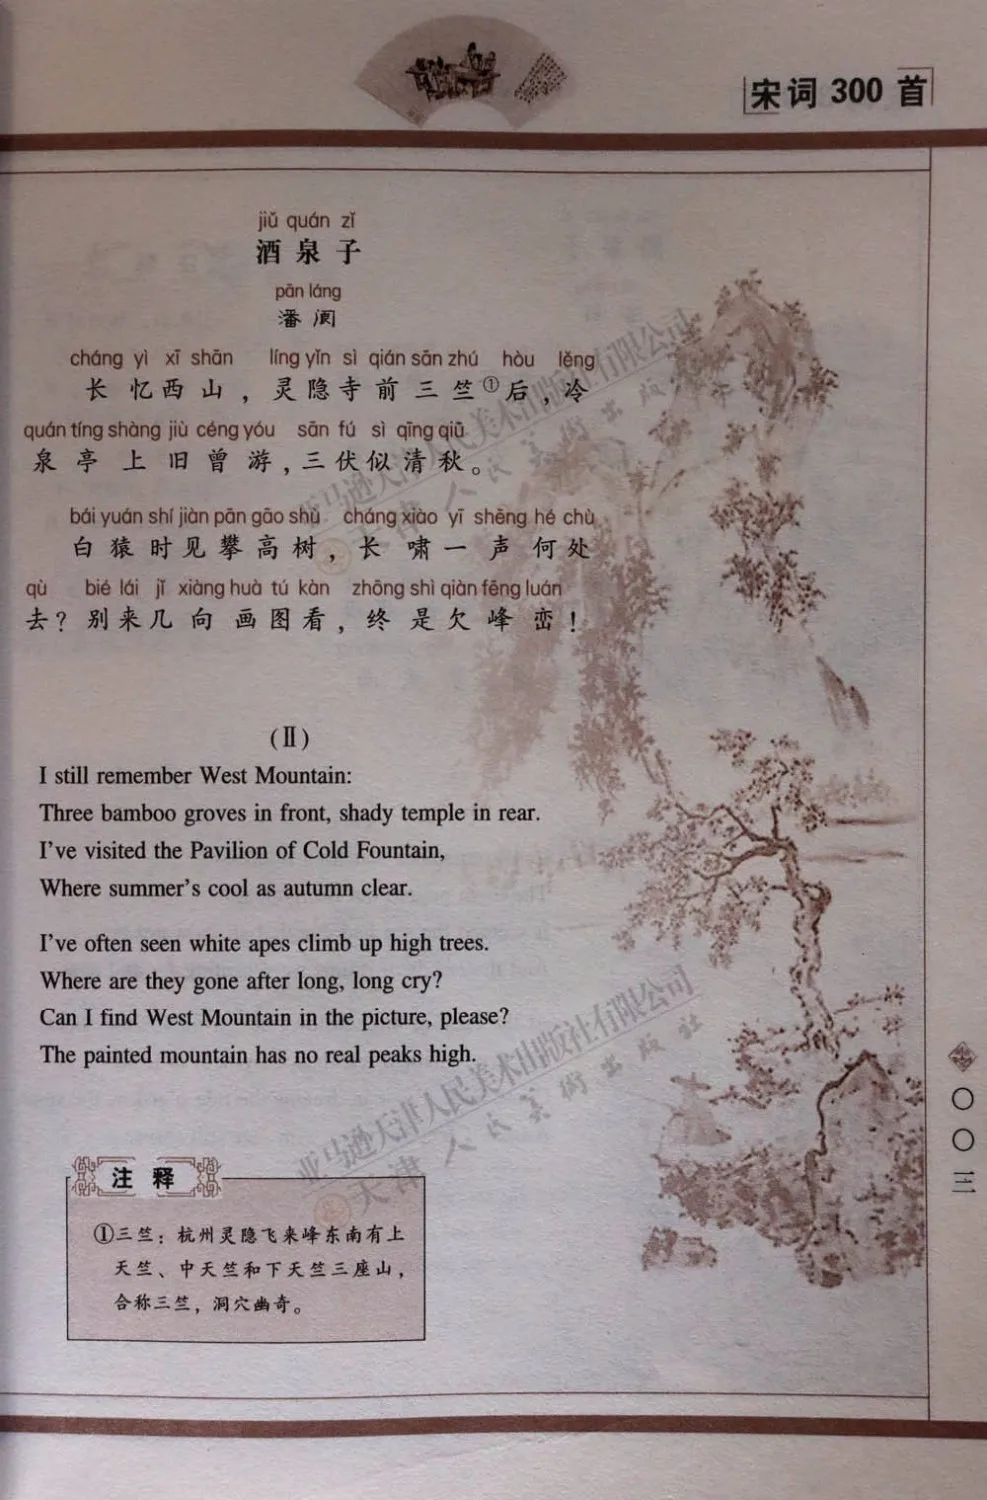 宋词 300 首
jiǔ quán zǐ
酒泉子
pān láng
潘阆
cháng yì xī shān líng yǐn sì qián sān zhú hòu lěng
长忆西山，灵隐寺前三竺①后，冷
quán tíng shàng jiù céng yóu sān fú sì qīng qiū
泉亭上旧曾游，三伏似清秋。
bái yuán shí jiàn pān gāo shù cháng xiào yī shēng hé chù
白猿时见攀高树，长啸一声何处
qù bié lái jǐ xiàng huà tú kàn zhōng shì qiàn fēng luán
去？别来几向画图看，终是欠峰峦！
(Ⅱ)
I still remember West Mountain:
Three bamboo groves in front, shady temple in rear.
I've visited the Pavilion of Cold Fountain,
Where summer's cool as autumn clear.
I've often seen white apes climb up high trees.
Where are they gone after long, long cry?
Can I find West Mountain in the picture, please?
The painted mountain has no real peaks high.
注释
①三竺：杭州灵隐飞来峰东南有上
天竺、中天竺和下天竺三座山，
合称三竺，洞穴幽奇。
〇〇三
亚马逊天津人民美术出版社有限公司
天津人民美術出版社
亚马逊天津人民美术出版社有限公司
天津人民美術出版社